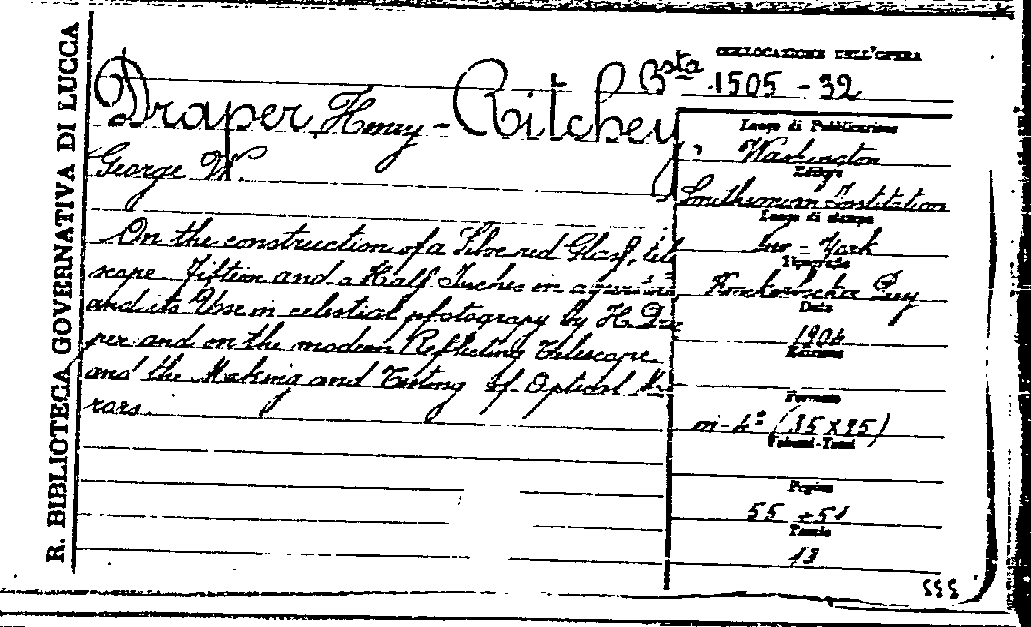 R. BIBLIOTECA GOVERNATIVA DI LUCCA
COLLOCAZIONE DELL'OPERA
Bsta 1505 - 32
Draper Henry - Ritchey,
George W.
On the construction of a Silvered Glass tel
scope Fifteen and a Half Inches in
and its Use in celestial photograpy by H. Dra
per and on the modern Reflecting Telescope
and the Making and Testing of Optical Mir
rors
Luogo di Pubblicazione
Washington
Smithsonian Institation
Luogo di stampa
New-York
Tipografia
Data
1904
Edizione
Formato
in-4° (35x25)
Volumi-Tomi
Pagine
55 + 51
Tavole
13